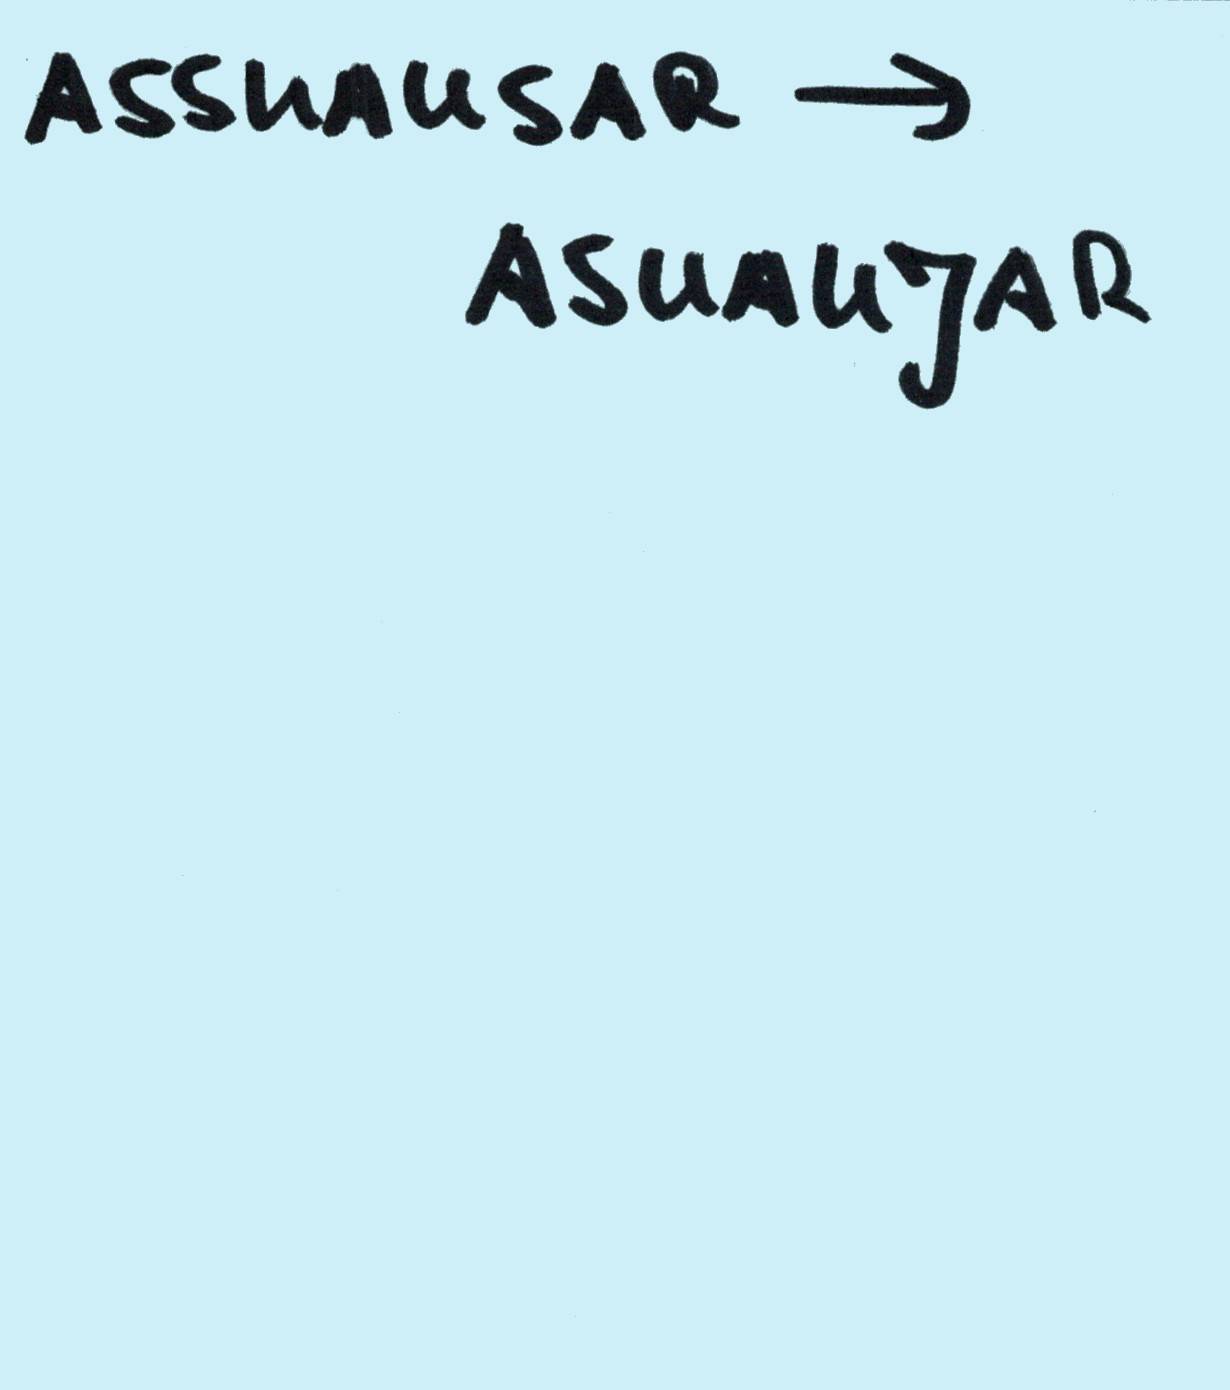 ASSUAUSAR →
ASUAUJAR